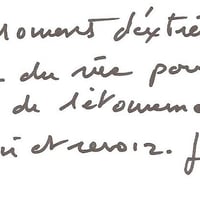 Moment d'extrê
du vée pour
de l'étonneme
ui et revoir.